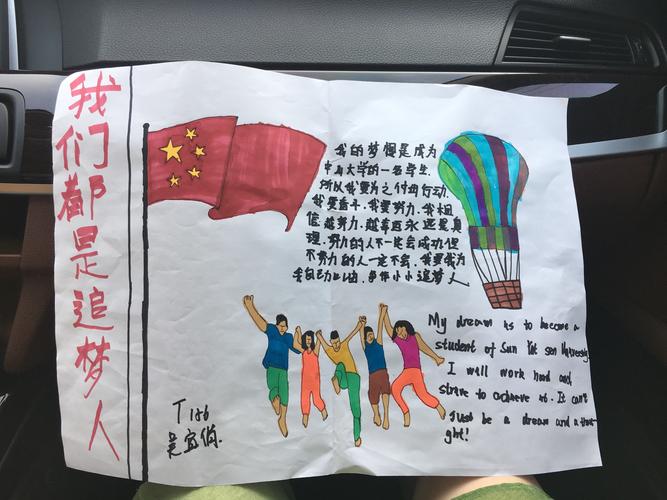 我们都是追梦人
我的梦想是成为
中山大学的一名学生.
所以我要为之付出行动.
我要奋斗,我要努力.我相
信越努力,越幸运永远是真
理.努力的人不一定会成功但
不努力的人一定不会.我要成为
自己,小小追梦人
My dream is to become a
student of Sun Yat sen University
I will work hard and
strive to achieve it. It can't
just be a dream and a thou
ght!
T136
吴宜俏.